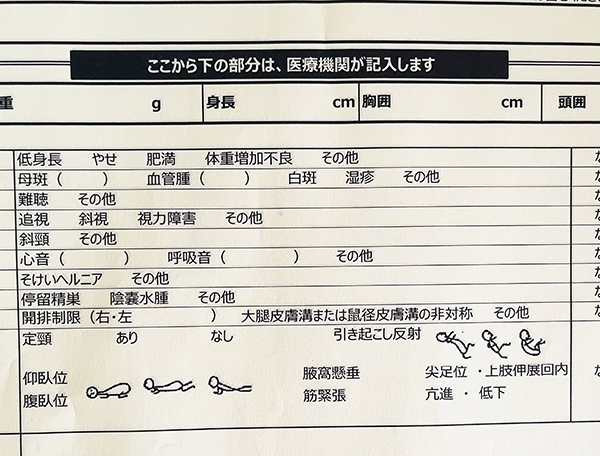 ここから下の部分は、医療機関が記入します
重 g 身長 cm 胸囲 cm 頭囲
低身長 やせ 肥満 体重増加不良 その他
母斑（ ） 血管腫（ ） 白斑 湿疹 その他
難聴 その他
追視 斜視 視力障害 その他
斜頸 その他
心音（ ） 呼吸音（ ） その他
そけいヘルニア その他
停留精巣 陰嚢水腫 その他
開排制限（右・左 ） 大腿皮膚溝または鼠径皮膚溝の非対称 その他
定頸 あり なし 引き起こし反射
仰臥位 腋窩懸垂 尖足位 ・上肢伸展回内
腹臥位 筋緊張 亢進 ・ 低下